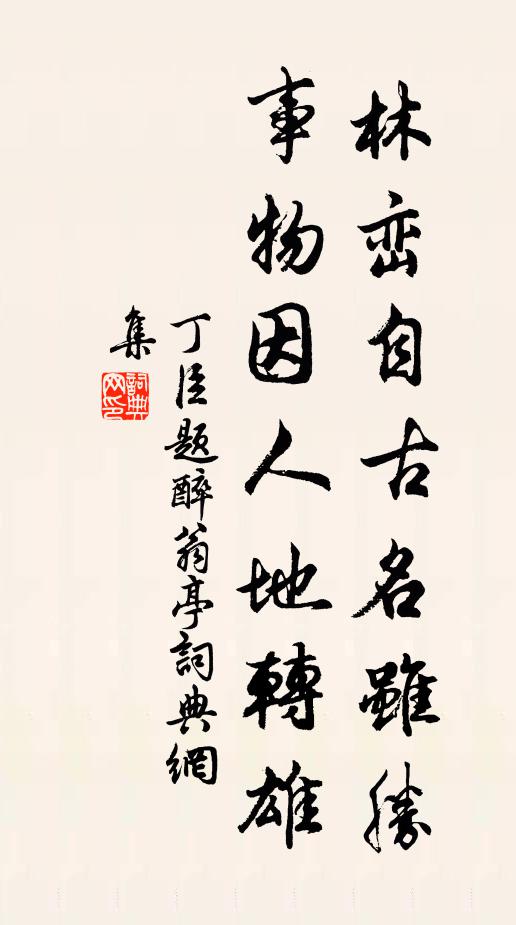 林峦自古名雖勝
事物因人地轉雄
丁臣题醉翁亭詞典網
集
詞典网印